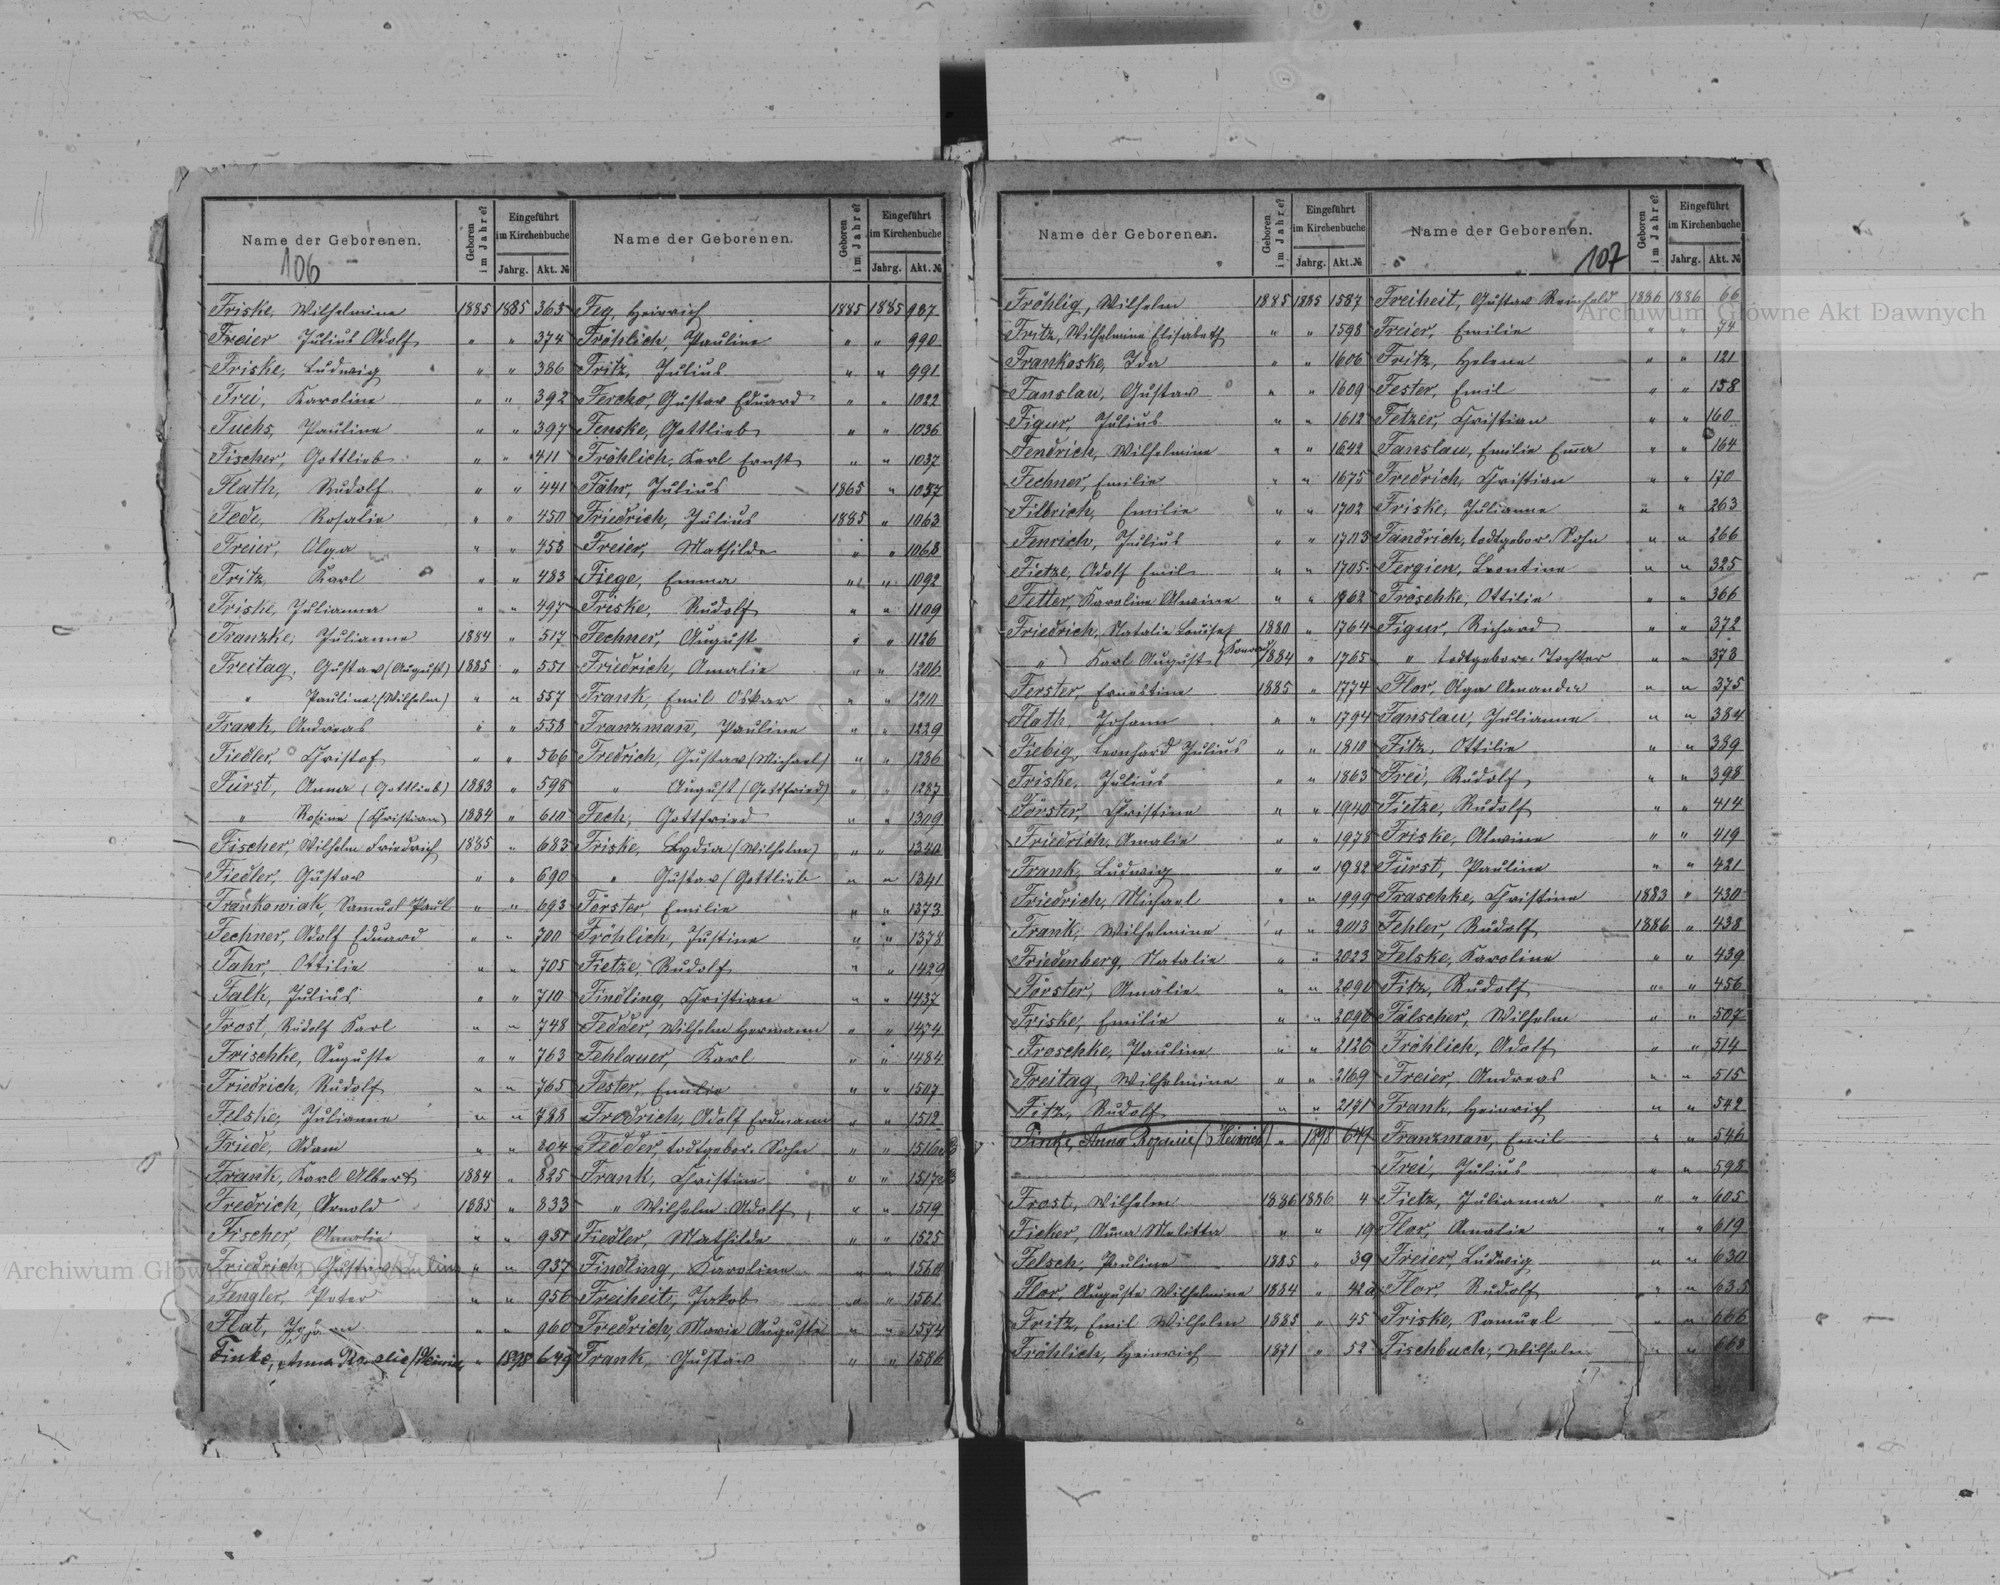 Name der Geborenen. Geboren im Jahre? Eingeführt im Kirchenbuche Jahrg. Akt. №
106
Friske, Wilhelmine 1885 1885 365
Freier Julius Adolf " " 374
Friske, Ludwig " " 386
Frei, Karoline " " 392
Fuchs, Pauline " " 397
Fischer, Gottlieb " " 411
Flath, Rudolf " " 441
Fede, Rosalie " " 450
Freier, Olga " " 458
Fritz, Karl " " 483
Friske, Julianna " " 497
Franzke, Julianne 1884 " 517
Freitag, Gustav (August) 1885 " 551
" Pauline (Wilhelm) " " 557
Frank, Andreas " " 558
Fiedler, Christof " " 566
Fürst, Anna (Gottlieb) 1883 " 598
" Rosine (Christian) 1884 " 610
Fischer, Wilhelm Friedrich 1885 " 683
Fiedler, Gustav " " 690
Frankowiak, Samuel Paul " " 693
Fechner, Adolf Eduard " " 700
Fahr, Ottilie " " 705
Falk, Julius " " 710
Frost, Rudolf Karl " " 748
Frischke, Auguste " " 763
Friedrich, Rudolf " " 765
Felske, Julianne " " 788
Friede, Adam " " 804
Frank, Karl Albert 1884 " 825
Fredrich, Arnold 1885 " 833
Fischer, Amalie " " 931
Friedrich, " " 937
Fengler, Peter " " 956
Flat, Johann " " 960
Finke, Anna Rosalie (Heinrich) " 1898 649
Name der Geborenen. Geboren im Jahre? Eingeführt im Kirchenbuche Jahrg. Akt. №
Feg, Heinrich 1885 1885 987
Fröhlich, Pauline " " 990
Fritz, Julius " " 991
Fercho, Gustav Eduard " " 1022
Fenske, Gottlieb " " 1036
Fröhlich, Karl Ernst " " 1037
Fähr, Julius 1865 " 1057
Friedrich, Julius 1885 " 1063
Freier, Mathilde " " 1068
Fiege, Emma " " 1092
Friske, Rudolf " " 1109
Fechner, August " " 1126
Friedrich, Amalie " " 1206
Frank, Emil Oskar " " 1210
Franzmann, Pauline " " 1229
Fredrich, Gustav (Michael) " " 1286
" August (Gottfried) " " 1287
Fech, Gottfried " " 1309
Friske, Lydia (Wilhelm) " " 1340
" Gustav (Gottlieb " " 1341
Förster, Emilie " " 1373
Fröhlich, Justine " " 1378
Fietze, Rudolf " " 1429
Findling, Christian " " 1437
Fedder, Wilhelm Hermann " " 1474
Fehlauer, Karl " " 1484
Fester, Emilie " " 1507
Fredrich, Adolf Erdmann " " 1512
Fedder, todtgebor. Sohn " " 1516
Frank, Christine " " 1517
" Wilhelm Adolf " " 1519
Fiedler, Mathilde " " 1525
Findling, Karoline " " 1560
Freiheit, Jakob " " 1561
Fredrich, Marie Auguste " " 1574
Frank, Gustav " " 1586
Name der Geborenen. Geboren im Jahre? Eingeführt im Kirchenbuche Jahrg. Akt. №
Fröhlig, Wilhelm 1885 1885 1587
Fritz, Wilhelmine Elisabeth " " 1598
Frankoske, Ida " " 1606
Fanslau, Gustav " " 1609
Figur, Julius " " 1612
Fendrich, Wilhelmine " " 1642
Fechner, Emilie " " 1675
Filbrich, Emilie " " 1702
Fenrich, Julius " " 1703
Fietze, Adolf Emil " " 1705
Fetter, Karoline Alwine " " 1762
Friedrich, Natalie Louise 1880 " 1764
" Karl August (Konrad) 1884 " 1765
Ferster, Ernestine 1885 " 1774
Flath, Johann " " 1794
Fiebig, Leonhard Julius " " 1810
Friske, Julius " " 1863
Förster, Christine " " 1940
Friedrich, Amalie " " 1978
Frank, Ludwig " " 1982
Friedrich, Michael " " 1999
Frank, Wilhelmine " " 2013
Friedenberg, Natalie " " 2023
Förster, Amalie " " 2090
Friske, Emilie " " 2096
Froschke, Pauline " " 2126
Freitag, Wilhelmine " " 2169
Fitz, Rudolf " " 2191
Finke, Anna Rozalie (Heinrich) " 1898 649
Frost, Wilhelm 1886 1886 4
Ficker, Anna Melitta " " 19
Felsch, Pauline 1885 " 39
Flor, Auguste Wilhelmine 1884 " 42a
Fritz, Emil Wilhelm 1885 " 45
Fröhlich, Heinrich 1871 " 52
Name der Geborenen. Geboren im Jahre? Eingeführt im Kirchenbuche Jahrg. Akt. №
107
Freiheit, Gustav Reinhold 1886 1886 66
Freier, Emilie " " 74
Fritz, Helene " " 121
Fester, Emil " " 158
Fetzer, Christian " " 160
Fanslau, Emilie Emma " " 164
Fredrich, Christian " " 170
Friske, Julianne " " 263
Fandrich, todtgebor. Sohn " " 266
Fergien, Leontine " " 325
Fröschke, Ottilie " " 366
Figur, Richard " " 372
" todtgebor. Tochter " " 373
Flor, Olga Amanda " " 375
Fanslau, Julianne " " 384
Fitz, Ottilie " " 389
Frei, Rudolf " " 398
Fietze, Rudolf " " 414
Friske, Alwine " " 419
Fürst, Pauline " " 421
Fraschke, Christine 1883 " 430
Fehler, Rudolf 1886 " 438
Felske, Karoline " " 439
Fitz, Rudolf " " 456
Fälscher, Wilhelm " " 507
Fröhlich, Adolf " " 514
Freier, Andreas " " 515
Frank, Heinrich " " 542
Franzmann, Emil " " 546
Frei, Julius " " 598
Fietz, Julianna " " 605
Flor, Amalie " " 619
Freier, Ludwig " " 630
Flor, Rudolf " " 635
Friske, Samuel " " 666
Fischbuch, Wilhelm " " 668
Archiwum Główne Akt Dawnych
Archiwum Główne Akt Dawnych